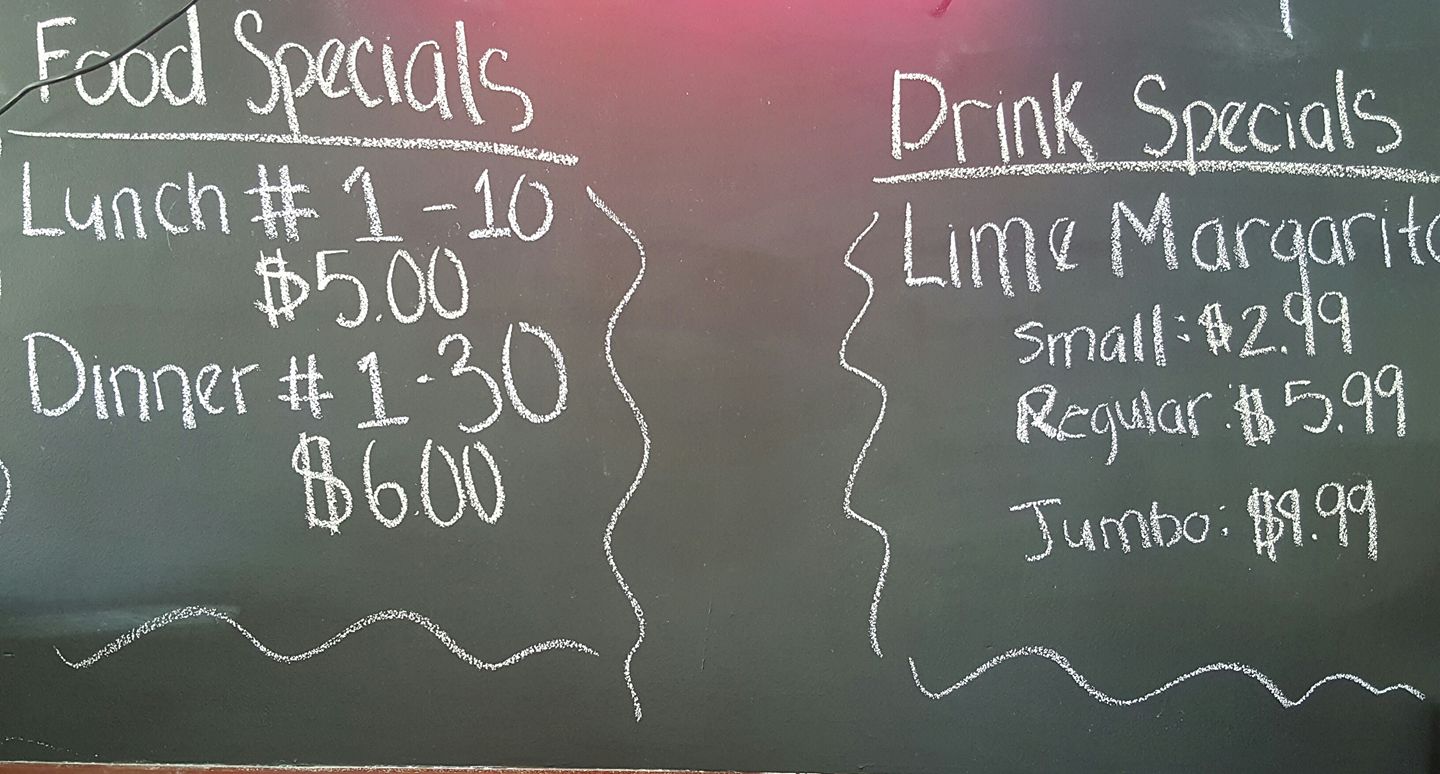 Food Specials
Lunch # 1 - 10
$5.00
Dinner # 1 - 30
$6.00
Drink Specials
Lime Margarita
Small: $2.99
Regular: $5.99
Jumbo: $9.99